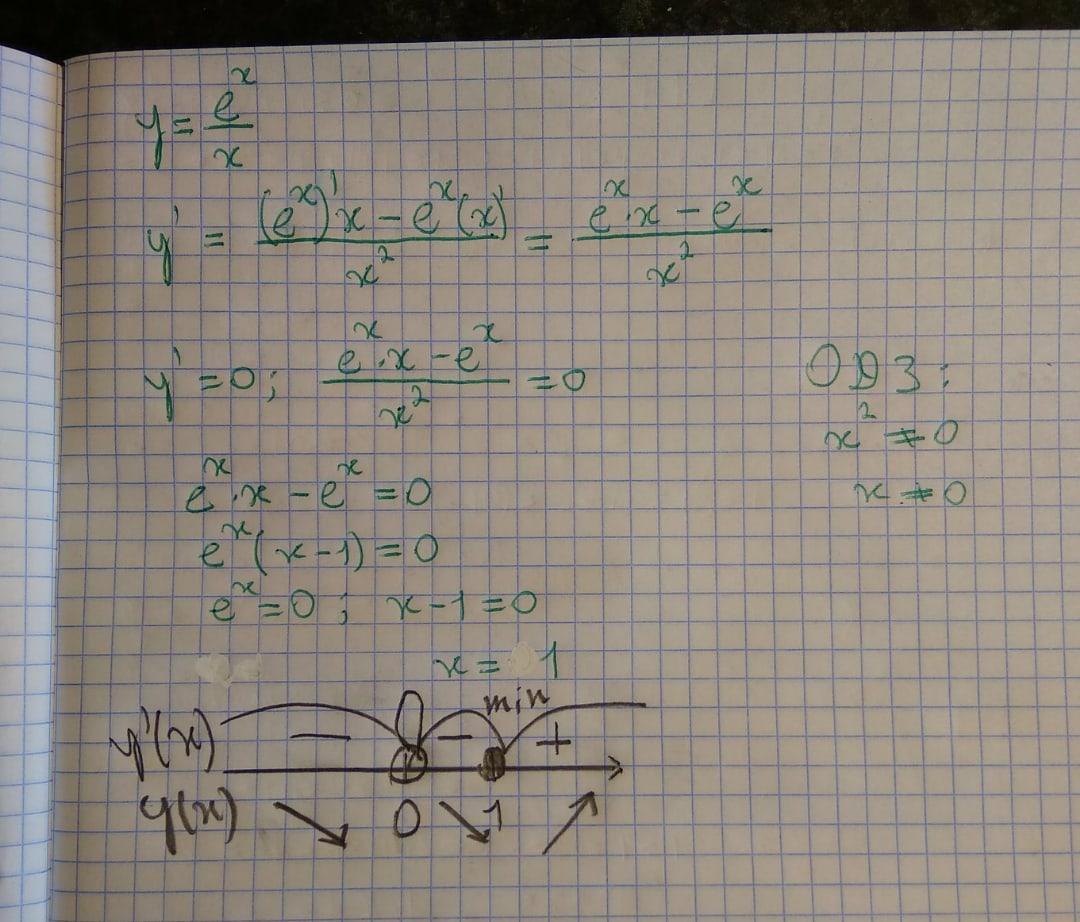 y = e^x / x
y' = ((e^x)'x − e^x(x)') / x² = (e^x·x − e^x) / x²
y' = 0; (e^x·x − e^x) / x² = 0
ОДЗ:
x² ≠ 0
x ≠ 0
e^x·x − e^x = 0
e^x(x−1) = 0
e^x = 0; x−1 = 0
x = 1
min
y'(x) − − +
y(x) ↘ 0 ↘ 1 ↗